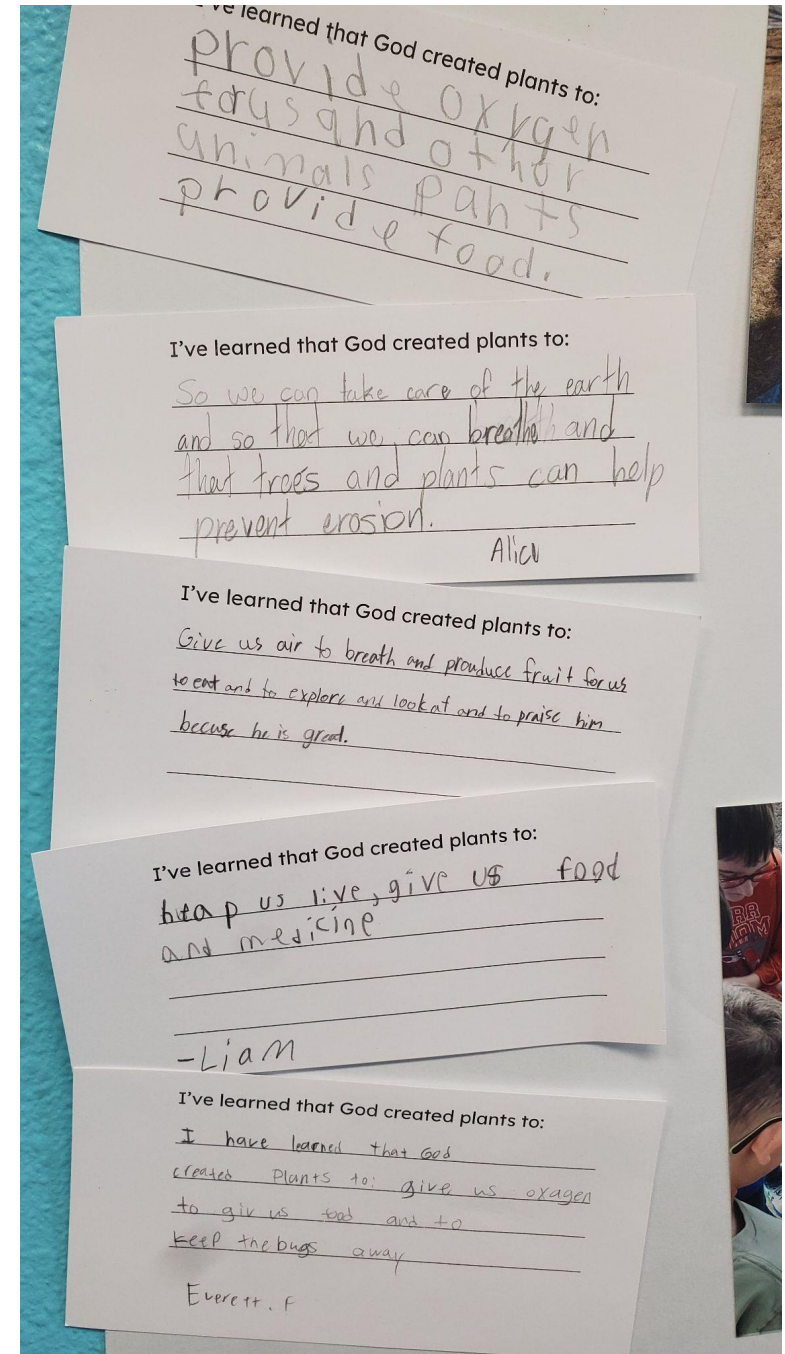 've learned that God created plants to:
provide oxygen
forus and other
animals pants
provide food.
I've learned that God created plants to:
So we can take care of the earth
and so that we can breathe and
that trees and plants can help
prevent erosion.
Alice
I've learned that God created plants to:
Give us air to breath and prouduce fruit for us
to eat and to explore and look at and to praise him
becuse he is great.
I've learned that God created plants to:
heap us live, give us food
and medicine
-Liam
I've learned that God created plants to:
I have learned that God
created Plants to: give us oxagen
to giv us food and to
keep the bugs away
Everett. F